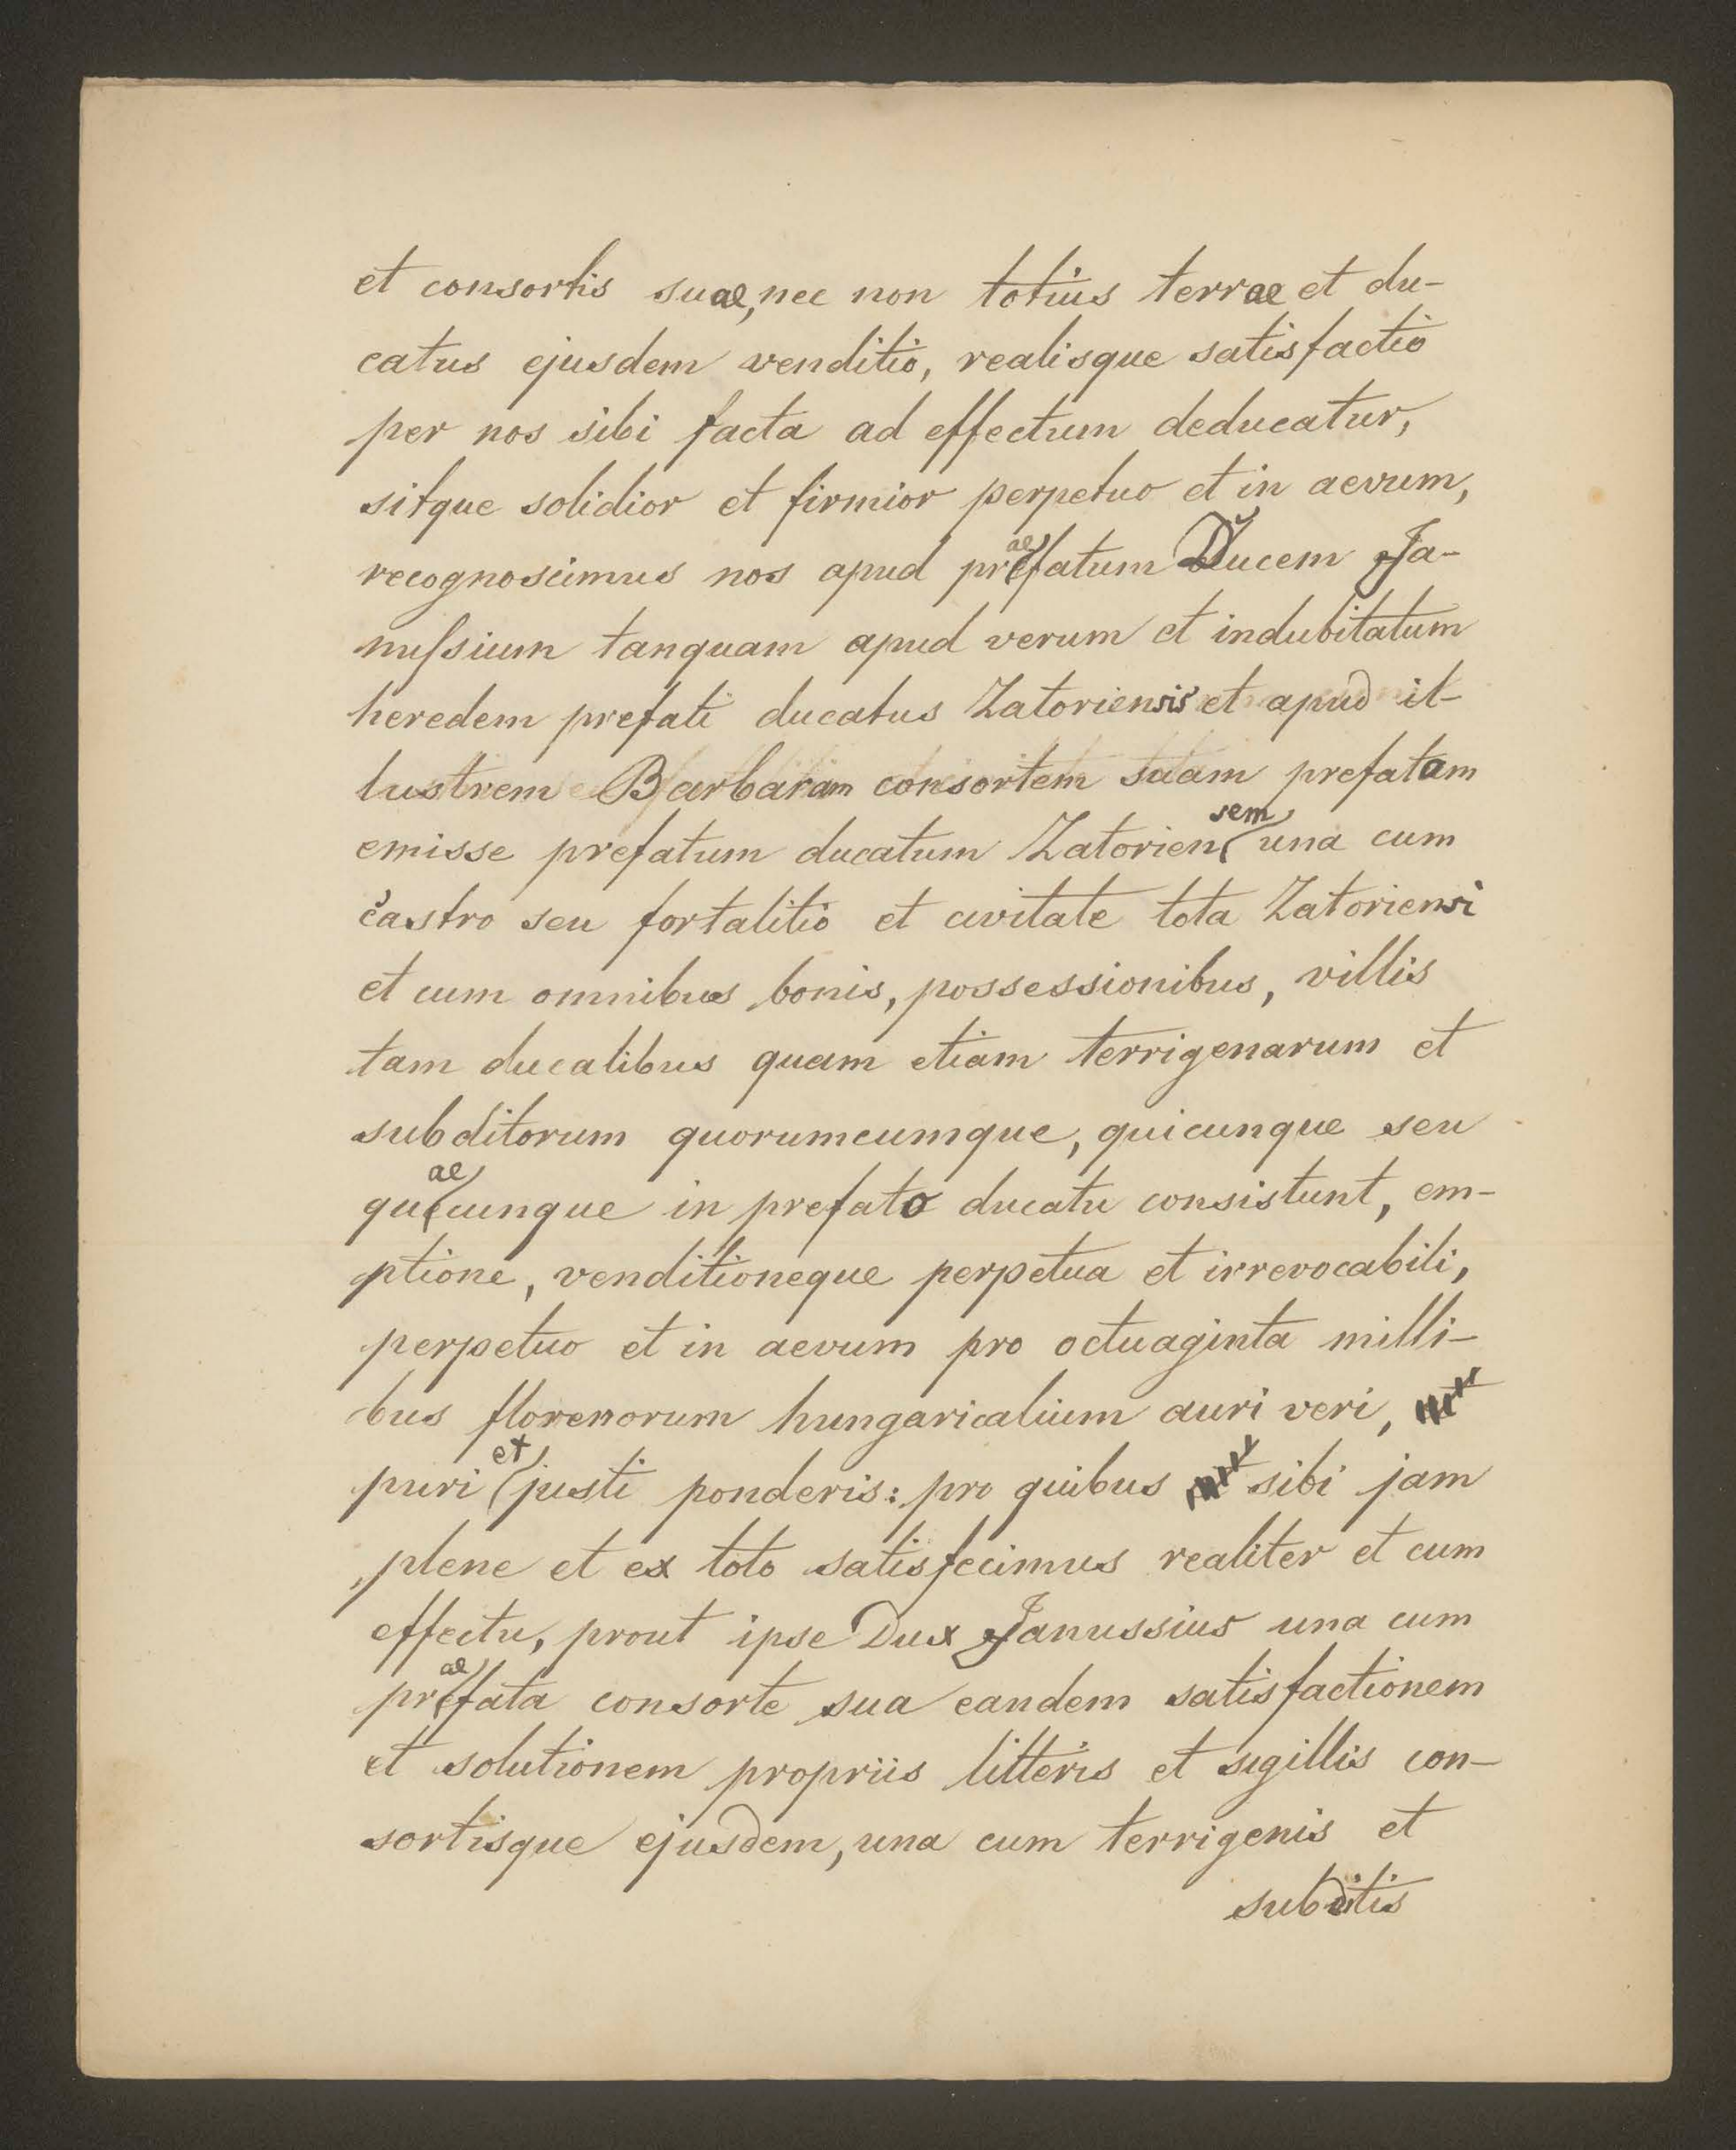 et consortis suae, nec non totius terrae et du-
catus ejusdem venditio, realisque satisfactio
per nos sibi facta ad effectum deducatur,
sitque solidior et firmior perpetuo et in aevum,
recognoscimus nos apud praefatum Ducem Ja-
nussium tanquam apud verum et indubitatum
heredem prefati ducatus Zatoriensis et apud il-
lustrem Barbaram consortem suam prefatam
emisse prefatum ducatum Zatoriensem una cum
castro seu fortalitio et civitate tota Zatoriensi
et cum omnibus bonis, possessionibus, villis
tam ducalibus quam etiam terrigenarum et
subditorum quorumcumque, quicunque seu
quaecunque in prefato ducatu consistunt, em-
ptione, venditioneque perpetua et irrevocabili,
perpetuo et in aevum pro octuaginta milli-
bus florenorum hungaricalium auri veri,
puri et justi ponderis: pro quibus sibi jam
plene et ex toto satisfecimus realiter et cum
effectu, prout ipse Dux Janussius una cum
praefata consorte sua eandem satisfactionem
et solutionem propriis litteris et sigillis con-
sortisque ejusdem, una cum terrigenis et
subditis